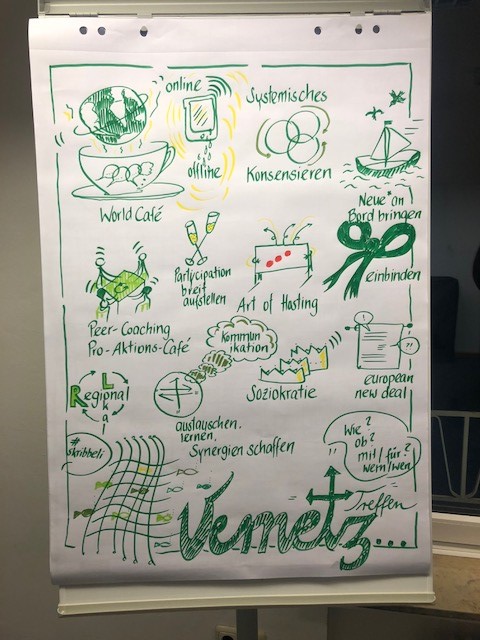 online
offline
Systemisches
Konsensieren
World Café
Neue an
Bord bringen
Participation
breit
aufstellen
Art of Hosting
einbinden
Peer-Coaching
Pro-Aktions-Café
Kommun
ikation
Soziokratie
european
new deal
Regional
Lokal
austauschen.
lernen,
Synergien schaffen
#
skribbeli
Wie?
ob?
mit/für?
wem/wen
Treffen
Vernetz...